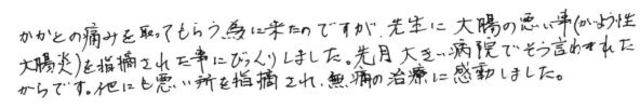 かかとの痛みを取ってもらう為に来たのですが、先生に大腸の悪い事(かいよう性
大腸炎)を指摘された事にびっくりしました。先月大きい病院でそう言われた
からです。他にも悪い所を指摘され、無痛の治療に感動しました。